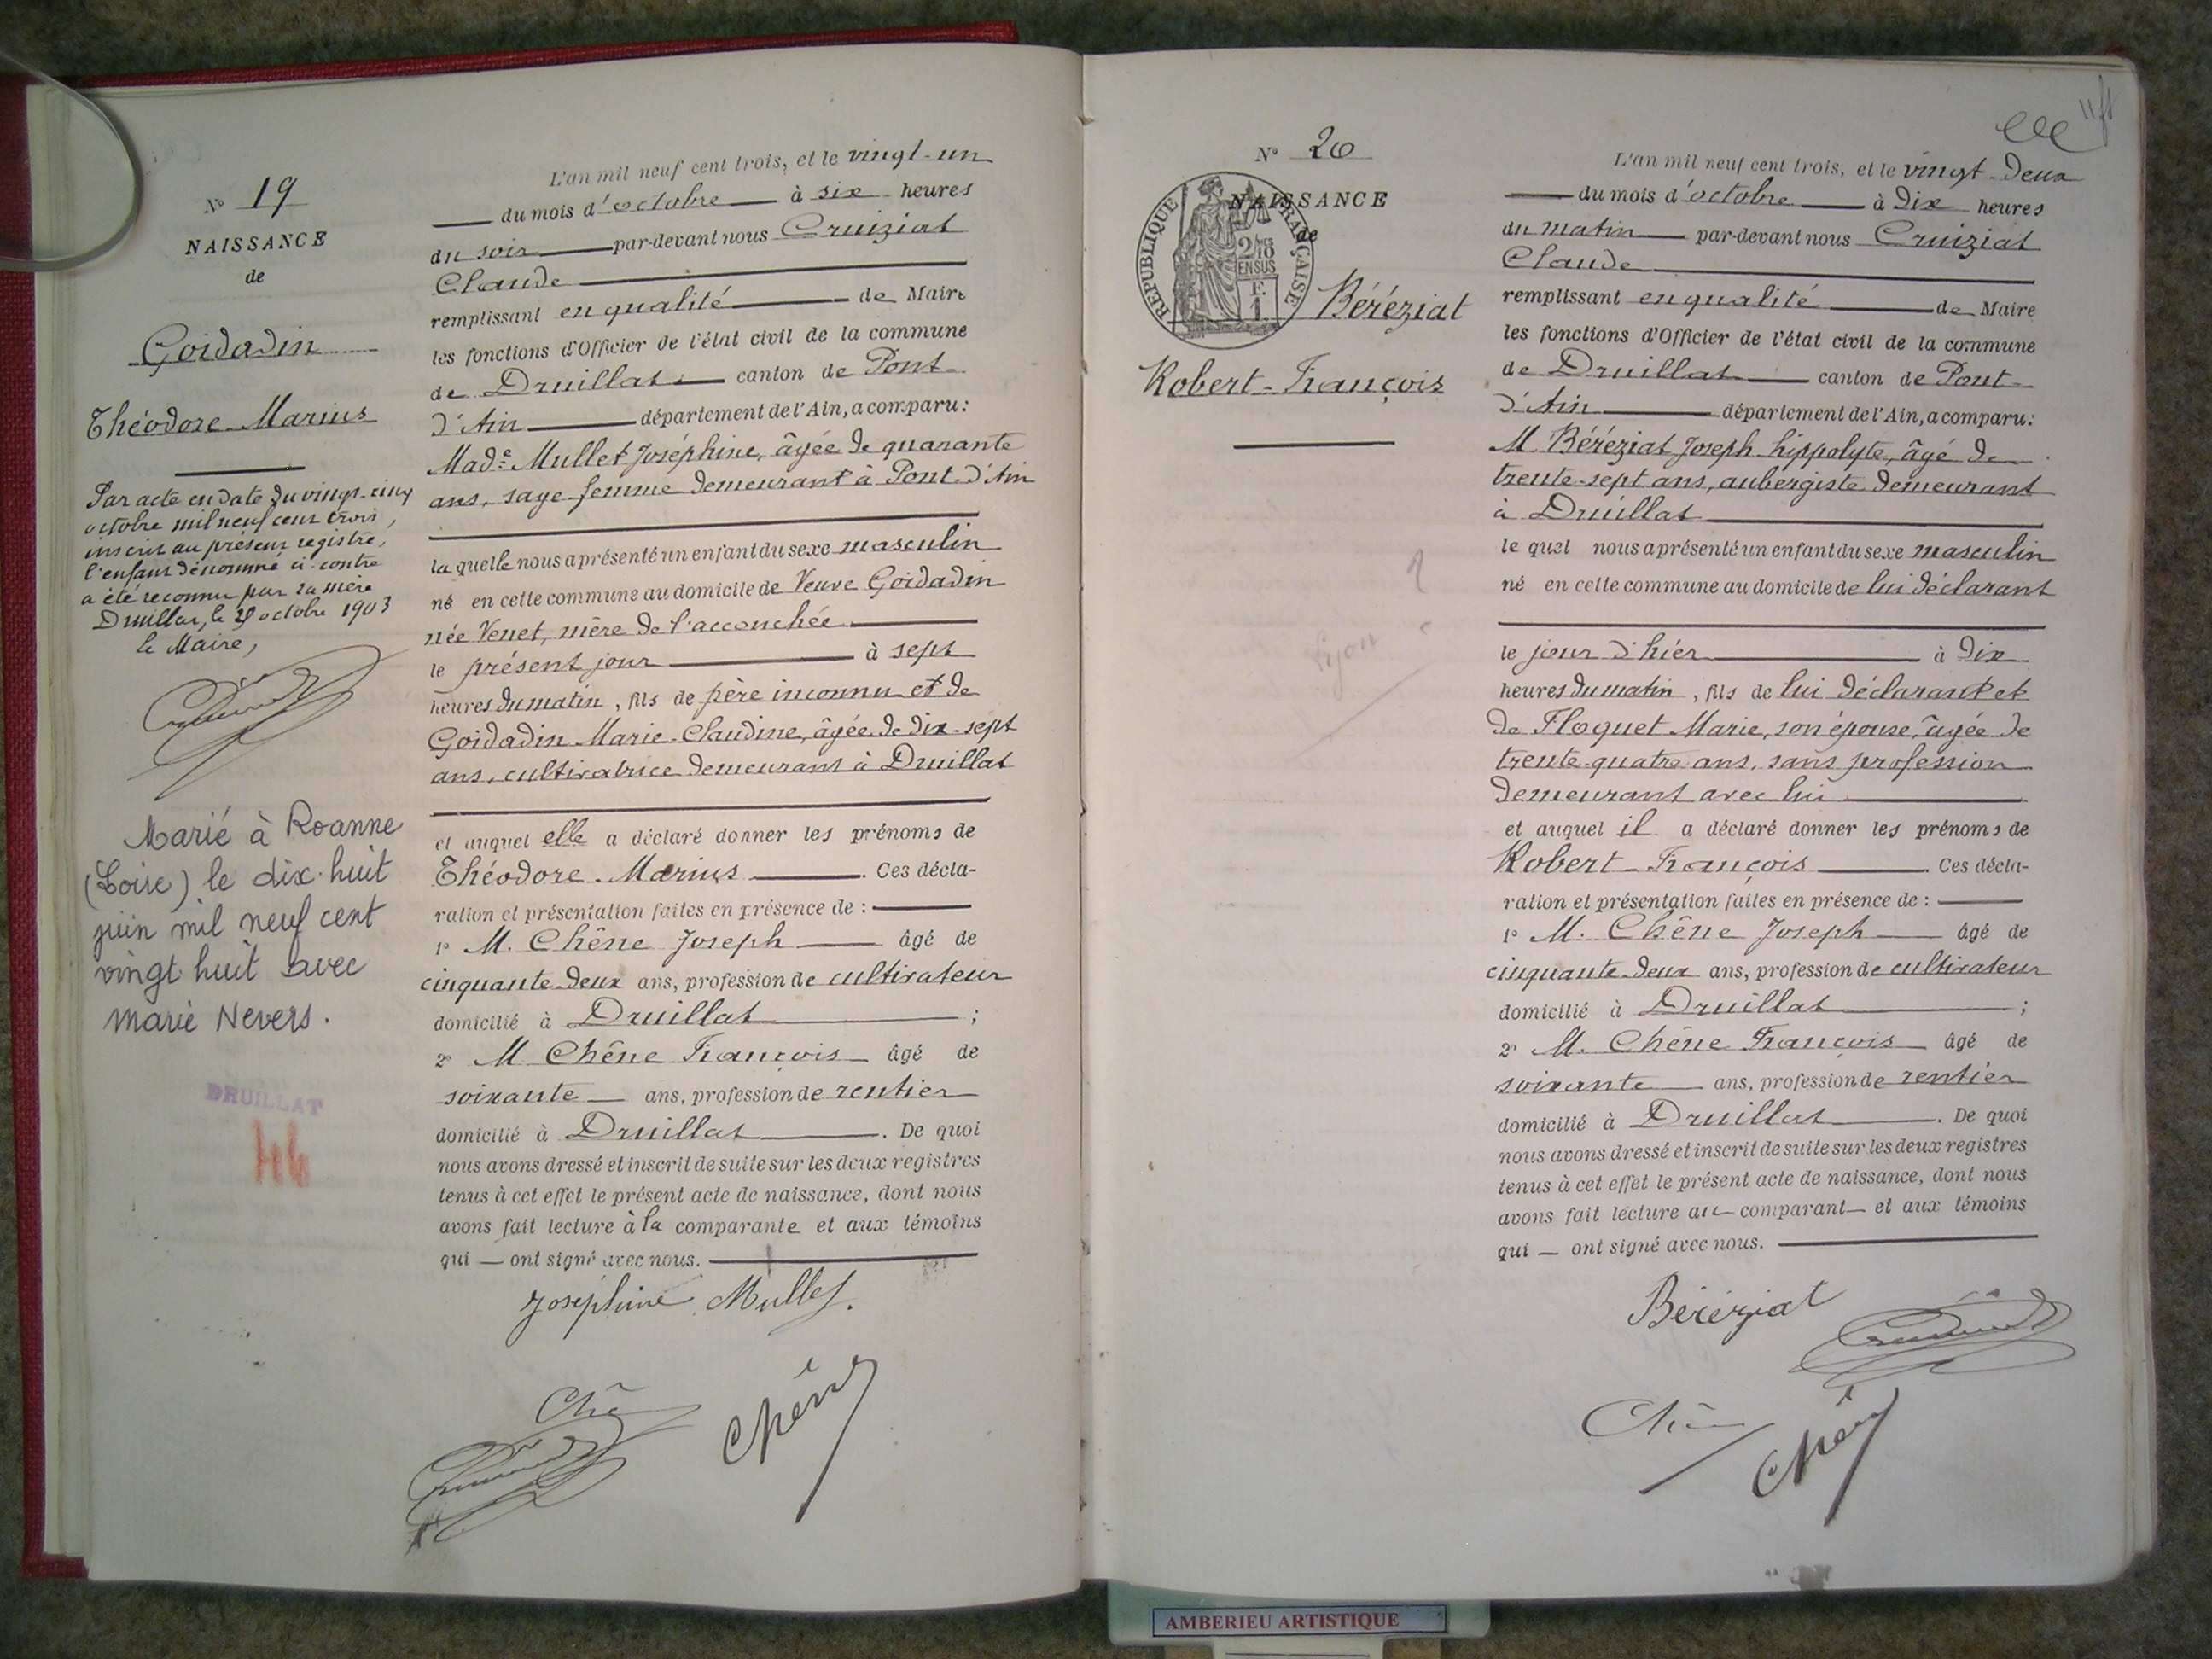 N° 19
NAISSANCE
de
Goidadin
Théodore-Marius
Par acte en date du vingt-cinq
octobre mil neuf cent trois,
inscrit au présent registre,
l'enfant dénommé ci-contre
a été reconnu par sa mère
Druillat, le octobre 1903
le Maire,
Marié à Roanne
(Loire) le dix-huit
juin mil neuf cent
vingt huit avec
Marie Nevers.
DRUILLAT
L'an mil neuf cent trois, et le vingt-un
du mois d'octobre à six heures
du soir par-devant nous Cruiziat
Claude
remplissant en qualité de Maire
les fonctions d'Officier de l'état civil de la commune
de Druillat canton de Pont-
d'Ain département de l'Ain, a comparu:
Made Mullet Joséphine, âgée de quarante
ans, sage-femme demeurant à Pont-d'Ain
la quelle nous a présenté un enfant du sexe masculin
né en cette commune au domicile de Veuve Goidadin
née Venet, mère de l'accouchée
le présent jour à sept
heures du matin, fils de père inconnu et de
Goidadin Marie-Claudine, âgée de dix-sept
ans, cultivatrice demeurant à Druillat
et auquel elle a déclaré donner les prénoms de
Théodore-Marius. Ces décla-
ration et présentation faites en présence de :
1° M. Chêne Joseph âgé de
cinquante-deux ans, profession de cultivateur
domicilié à Druillat ;
2° M Chêne François âgé de
soixante ans, profession de rentier
domicilié à Druillat. De quoi
nous avons dressé et inscrit de suite sur les deux registres
tenus à cet effet le présent acte de naissance, dont nous
avons fait lecture à la comparante et aux témoins
qui — ont signé avec nous.
Joséphine Mullet.
Chê
Chêne
N° 20
NAISSANCE
de
RÉPUBLIQUE FRANÇAISE
2/10
EN SUS
F.
1
Béréziat
Robert-François
Lyon
L'an mil neuf cent trois, et le vingt-deux
du mois d'octobre à dix heures
du matin par-devant nous Cruiziat
Claude
remplissant en qualité de Maire
les fonctions d'Officier de l'état civil de la commune
de Druillat canton de Pont-
d'Ain département de l'Ain, a comparu:
M. Béréziat Joseph-hippolyte, âgé de
trente-sept ans, aubergiste demeurant
à Druillat
le quel nous a présenté un enfant du sexe masculin
né en cette commune au domicile de lui déclarant
le jour d'hier à dix
heures du matin, fils de lui déclarant et
de Floquet Marie, son épouse, âgée de
trente-quatre ans, sans profession
demeurant avec lui
et auquel il a déclaré donner les prénoms de
Robert-François. Ces décla-
ration et présentation faites en présence de :
1° M. Chêne Joseph âgé de
cinquante-deux ans, profession de cultivateur
domicilié à Druillat ;
2° M. Chêne François âgé de
soixante ans, profession de rentier
domicilié à Druillat. De quoi
nous avons dressé et inscrit de suite sur les deux registres
tenus à cet effet le présent acte de naissance, dont nous
avons fait lecture au comparant et aux témoins
qui — ont signé avec nous.
Béréziat
Chê
AMBERIEU ARTISTIQUE